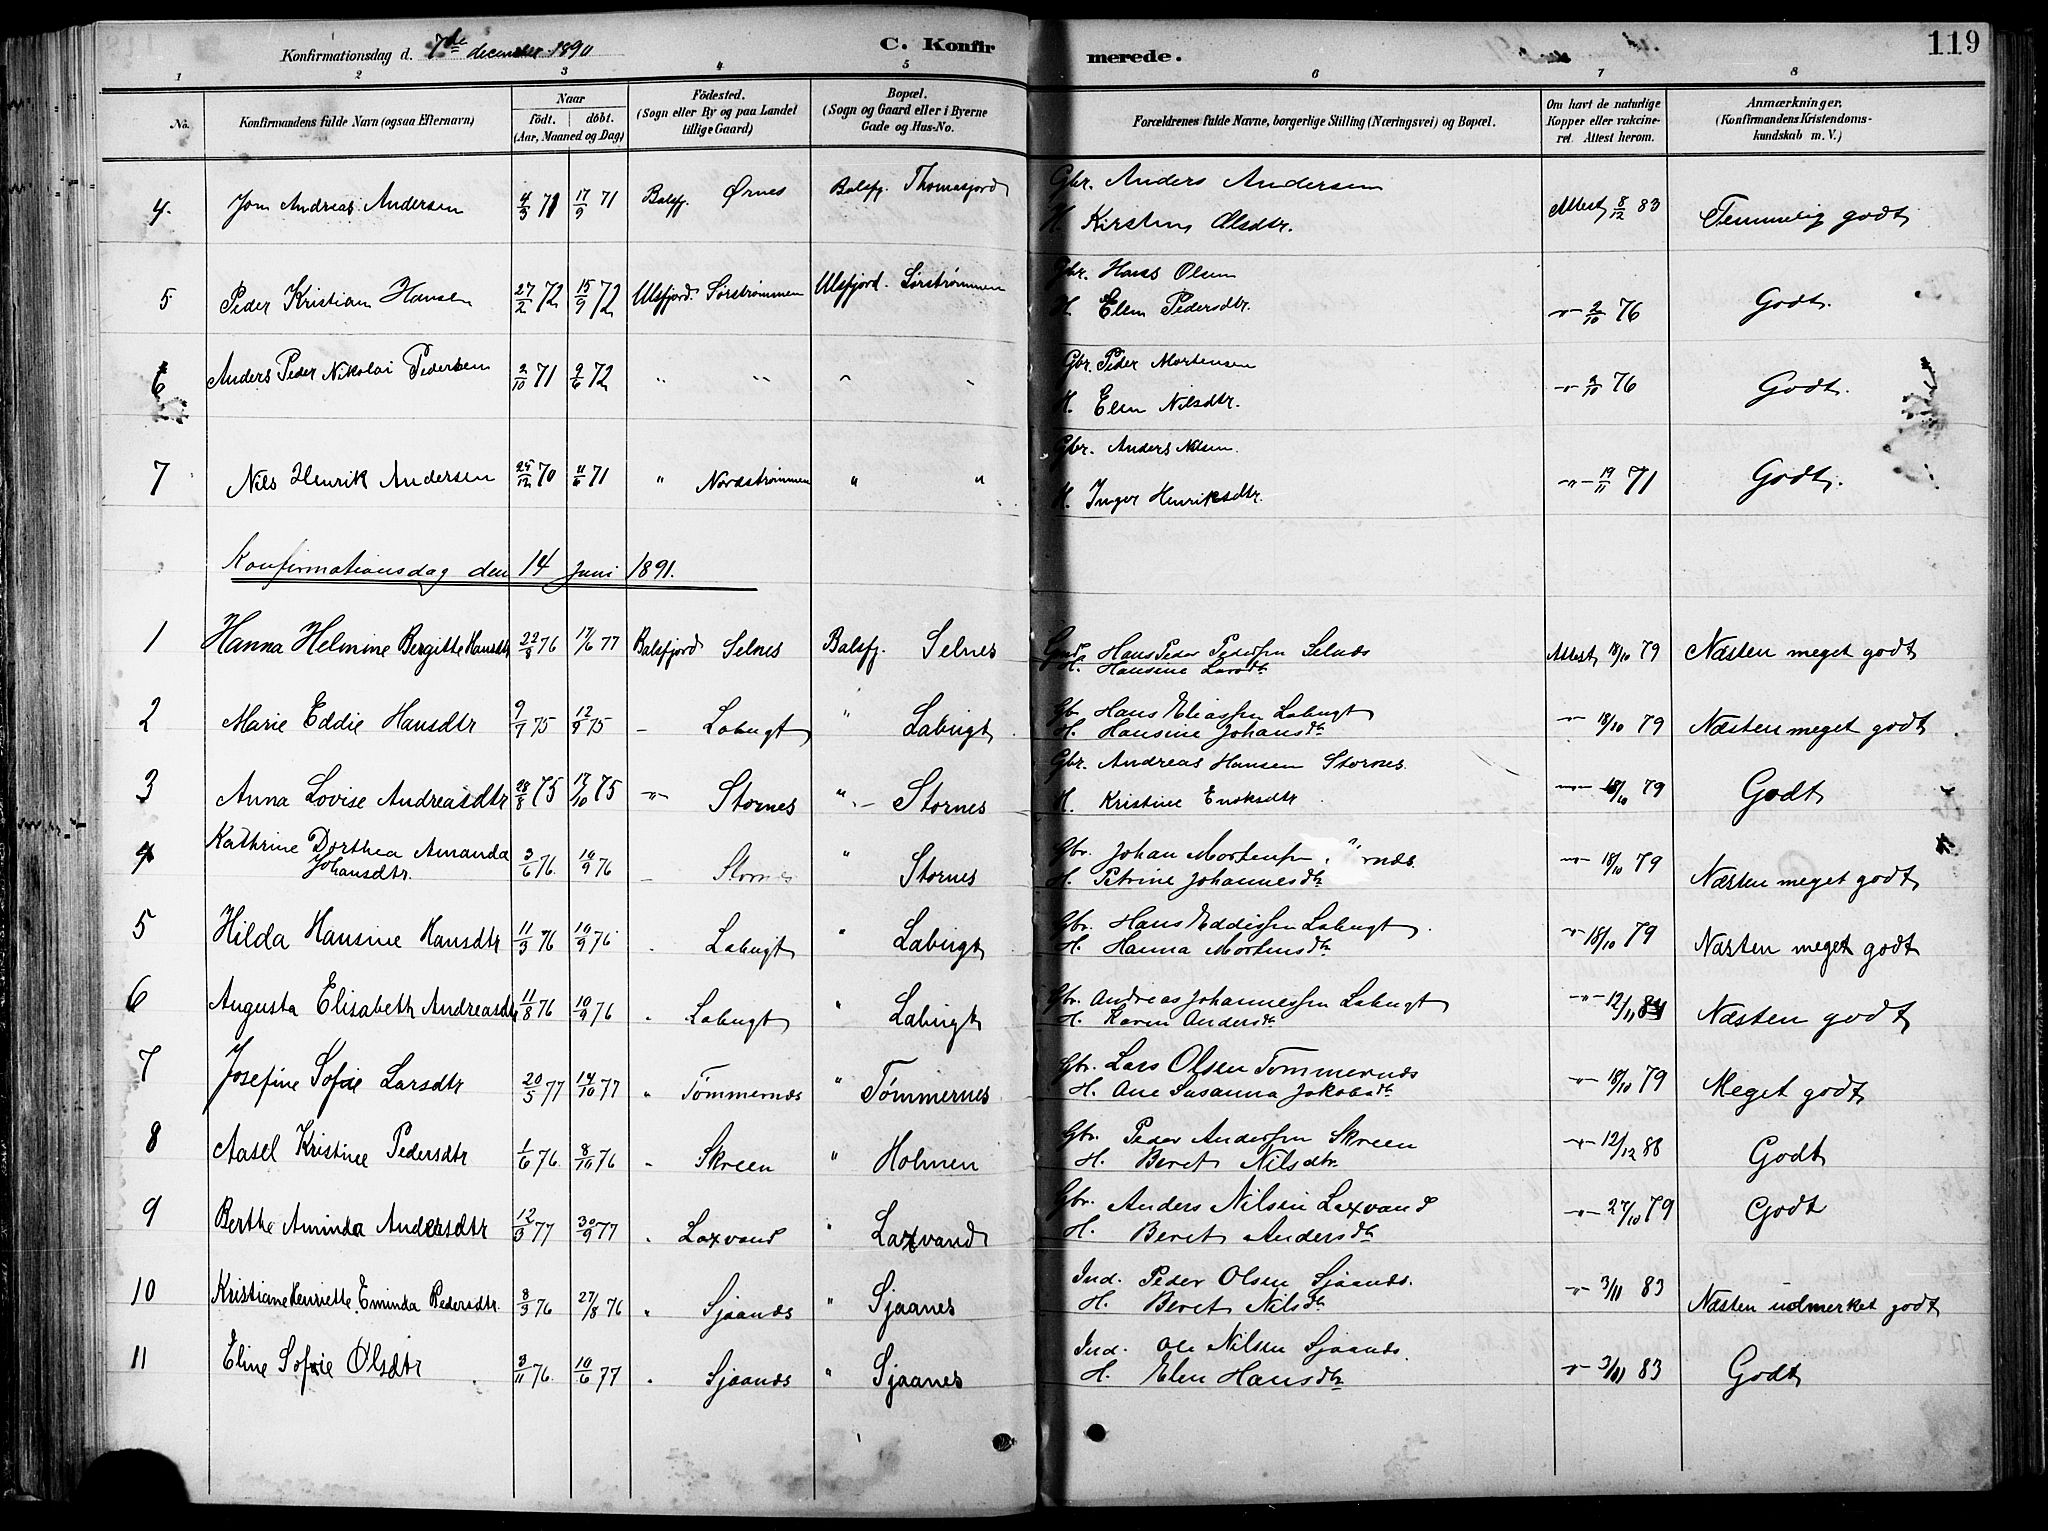 Konfirmationsdag d. 7de december 1890 C. Konfirmerede. 119
1 2 3 4 5 6 7 8
No. Konfirmandens fulde Navn (ogsaa Efternavn) Naar født. døbt. (Aar, Maaned og Dag) Födested. (Sogn eller By og paa Landet tillige Gaard) Bopæl. (Sogn og Gaard eller i Byerne Gade og Hus-No. Forældrenes fulde Navne, borgerlige Stilling (Næringsvei) og Bopæl. Om havt de naturlige Kopper eller vakcineret. Attest herom. Anmærkninger. (Konfirmandens Kristendomskundskab m. V.)
4. Jon Andreas Andersen 4/3 71 17/9 71 Balsfj. Ørnes Balsfj. Thomasjord Gbr. Anders Andersen Attest 8/12 83 Temmelig godt
H. Kirstine Olsdtr.
5 Peder Kristian Hansen 27/2 72 15/9 72 Ulsfjord. Sørstrømmen Ulsfjord. Sørstrømmen Gbr. Hans Olsen
H. Elen Pedersdtr. -"- 2/10 76 Godt.
6 Anders Peder Nikolai Pedersen 2/10 71 9/6 72 " " " " Gbr Peder Mortensen
H. Elen Nilsdtr. -"- 2/10 76 Godt.
7 Nils Henrik Andersen 25/12 70 11/6 71 " Nordstrømmen " " Gbr. Anders Nilsen.
H. Inger Henriksdtr. -"- 19/11 71 Godt.
Konfirmationsdag den 14 Juni 1891.
1 Hanna Helmine Bergitte Hansdtr 22/8 76 17/6 77 Balsfjord Selnes Balsfj. Selnes Hans Peder Pedersen Selnæs Attest 18/10 79 Næsten meget godt
H. Hansine Larsdtr
2 Marie Eddie Hansdtr 9/7 75 12/9 75 - Labugt " Labugt Gbr Hans Eliassen Labugt -"- 18/10 79 Næsten meget godt
H. Hansine Johansdtr
3 Anna Lovise Andreasdtr 28/8 75 17/10 75 -"- Stornes " - Stornes Gbr. Andreas Hansen Stornes.
H. Kristine Enoksdtr. -"- 18/10 79 Godt
4 Kathrine Dorthea Amanda Johansdtr. 3/6 76. 10/9 76 - Stornes " Stornes Gbr. Johan Mortensen -"- 18/10 79 Næsten meget godt
H. Petrine Johannesdtr
5 Hilda Hansine Hansdtr 11/3 76 10/9 76 " Labugt " Labugt Gbr. Hans Eddissen Labugt -"- 18/10 79 Næsten meget godt
H. Hanna Mortensdtr
6 Augusta Elisabeth Andreasdtr 11/8 76 10/9 76 " Labugt " Labugt Gbr. Andreas Johannessen Labugt -"- 12/11 84 Næsten godt
H. Karen Andersdtr
7 Josefine Sofie Larsdtr 20/5 77 14/10 77 " Tømmernæs " Tømmernes Gbr. Lars Olsen Tømmernæs -"- 18/10 79 Meget godt
H. Ane Susanna Jakobsdtr
8 Aasel Kristine Pedersdtr 1/6 76. 8/10 76 " Skreen " Holmen Gbr. Peder Anderssen Skreen -"- 12/12 88 Godt
H. Beret Nilsdtr.
9 Berthe Aminda Andersdtr 12/3 77 30/9 77 " Laxvand " Laxvand Gbr. Anders Nilsen Laxvand -"- 27/10 79 Godt
H. Beret Andersdtr
10 Kristiane Henriette Eminda Pedersdtr. 8/3 76 27/8 76 " Sjaanæs " Sjaanes Ind. Peder Olsen Sjaanæs. -"- 3/11 83 Næsten udmerket godt
H. Beret Nilsdtr
11 Eline Sofie Olsdtr 3/11 76. 10/6 77 " Sjaanæs " Sjaanes Ind. Ole Nilsen Sjaanæs. -"- 3/11 83 Godt
H. Elen Hansdtr